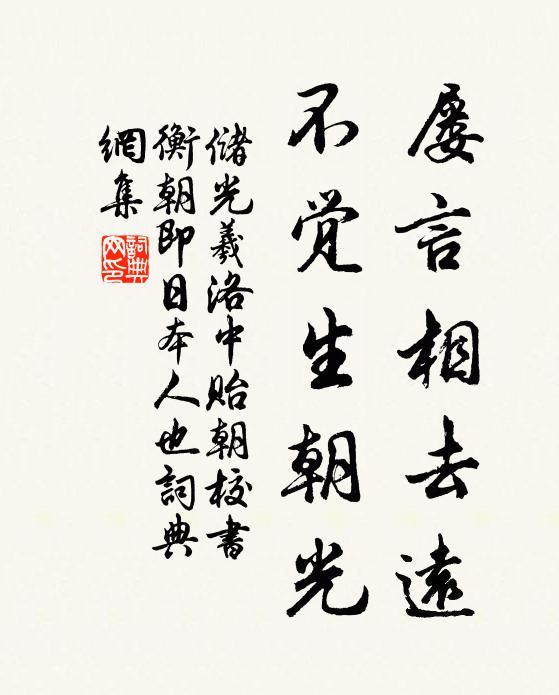 屡言相去遠
不觉生朝光
儲光羲洛中貽朝校書
衡朝即日本人也詞典
網集
詞典网印